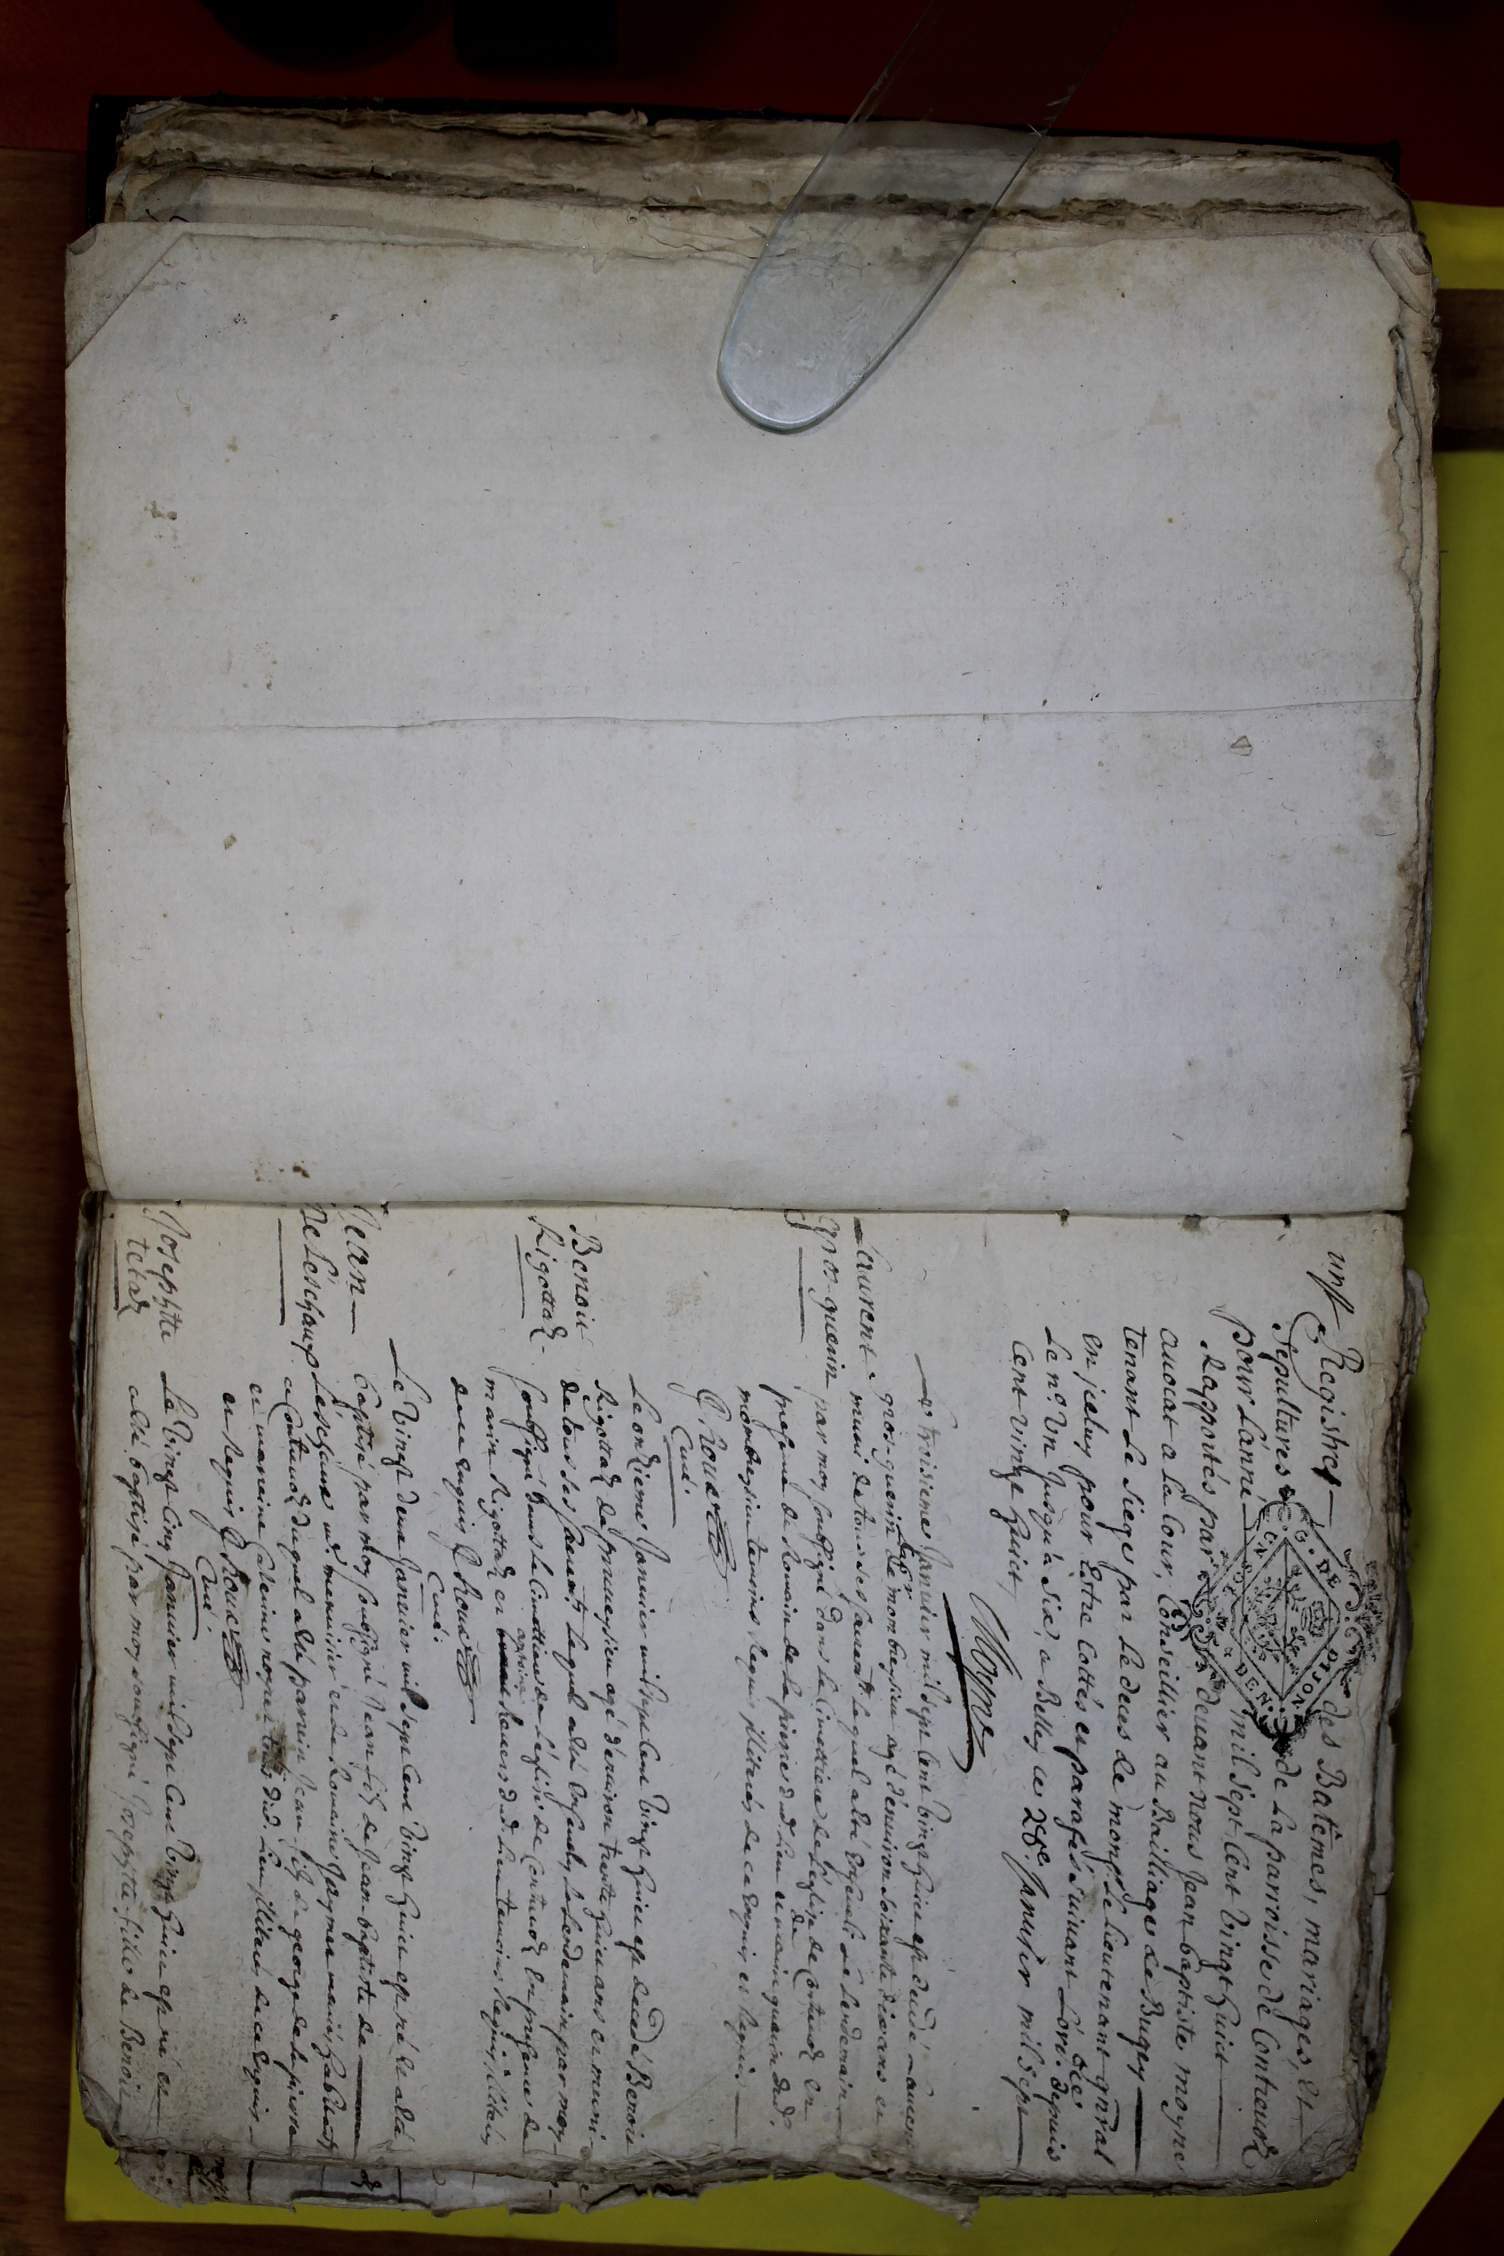 unze
Registre des Batêmes, mariages, et
Sepultures de la parroisse de Contreuoz
pour L'année mil Sept Cent Vingt huict
Rapportés par deuant nous Jean baptiste moyne
auocat a la Cour, Conseillier au Bailliage de Bugey
tenant le Siege par le deces de monsr. le lieutenant gnral
en jceluy pour Estre Cottés et parafés suiuant L'ord. depuis
le no. Vn Jusqu'à six, a Belley ce 28e. Januier mil sept
Cent vingt huict,
Moyne
Laurent
gros-guerin
Le troisieme Januier mil sept Cent Vingt huict est decedé Laurent
gros-guerin de monbreysieu agé d'enuiron soixante dix ans et
muni de tous ses sacremts. lequel a été Enseueli le lendemain
par moy soussigné dans le Cimettiere de L'eglise de Contreuoz en
presence de Romain de la pierre dud. lieu et guerin dud.
monbreysieu temoins Requis illiterés de ce enquis et Requis.
Roux
Curé.
Benoit
Rigottaz
Le onzieme Januier mil sept Cent Vingt huict est decedé Benoit
Rigottaz de preueysieu agé d'enuiron trente huict ans et muni
de tous ses sacremts. lequel a été Enseuely le lendemain par moy
soussigné dans le Cimettiere de L'eglise de Contreuoz En presence de
marin Rigottaz et dud. lieu temoins Requis illiterés
de ce enquis Roux
Curé.
Jean
De Léschaux
Le Vingt deux Januier mil sept Cent Vingt huict est né et a été
baptisé par moy soussigné Jean fils de Jean baptiste de
Léschaux md. meunier et de Romaine mariés habitants
a Contreuoz duquel a été parrain Jean fils de george de la pierre
et marreine Catherine tous dud. lieu illiterés de ce enquis
et Requis Roux
Curé.
Josephte
tetaz
Le Vingt Cinq Januier mil sept Cent Vingt huict est née et
a été baptisée par moy soussigné Josephte fille de Benoit